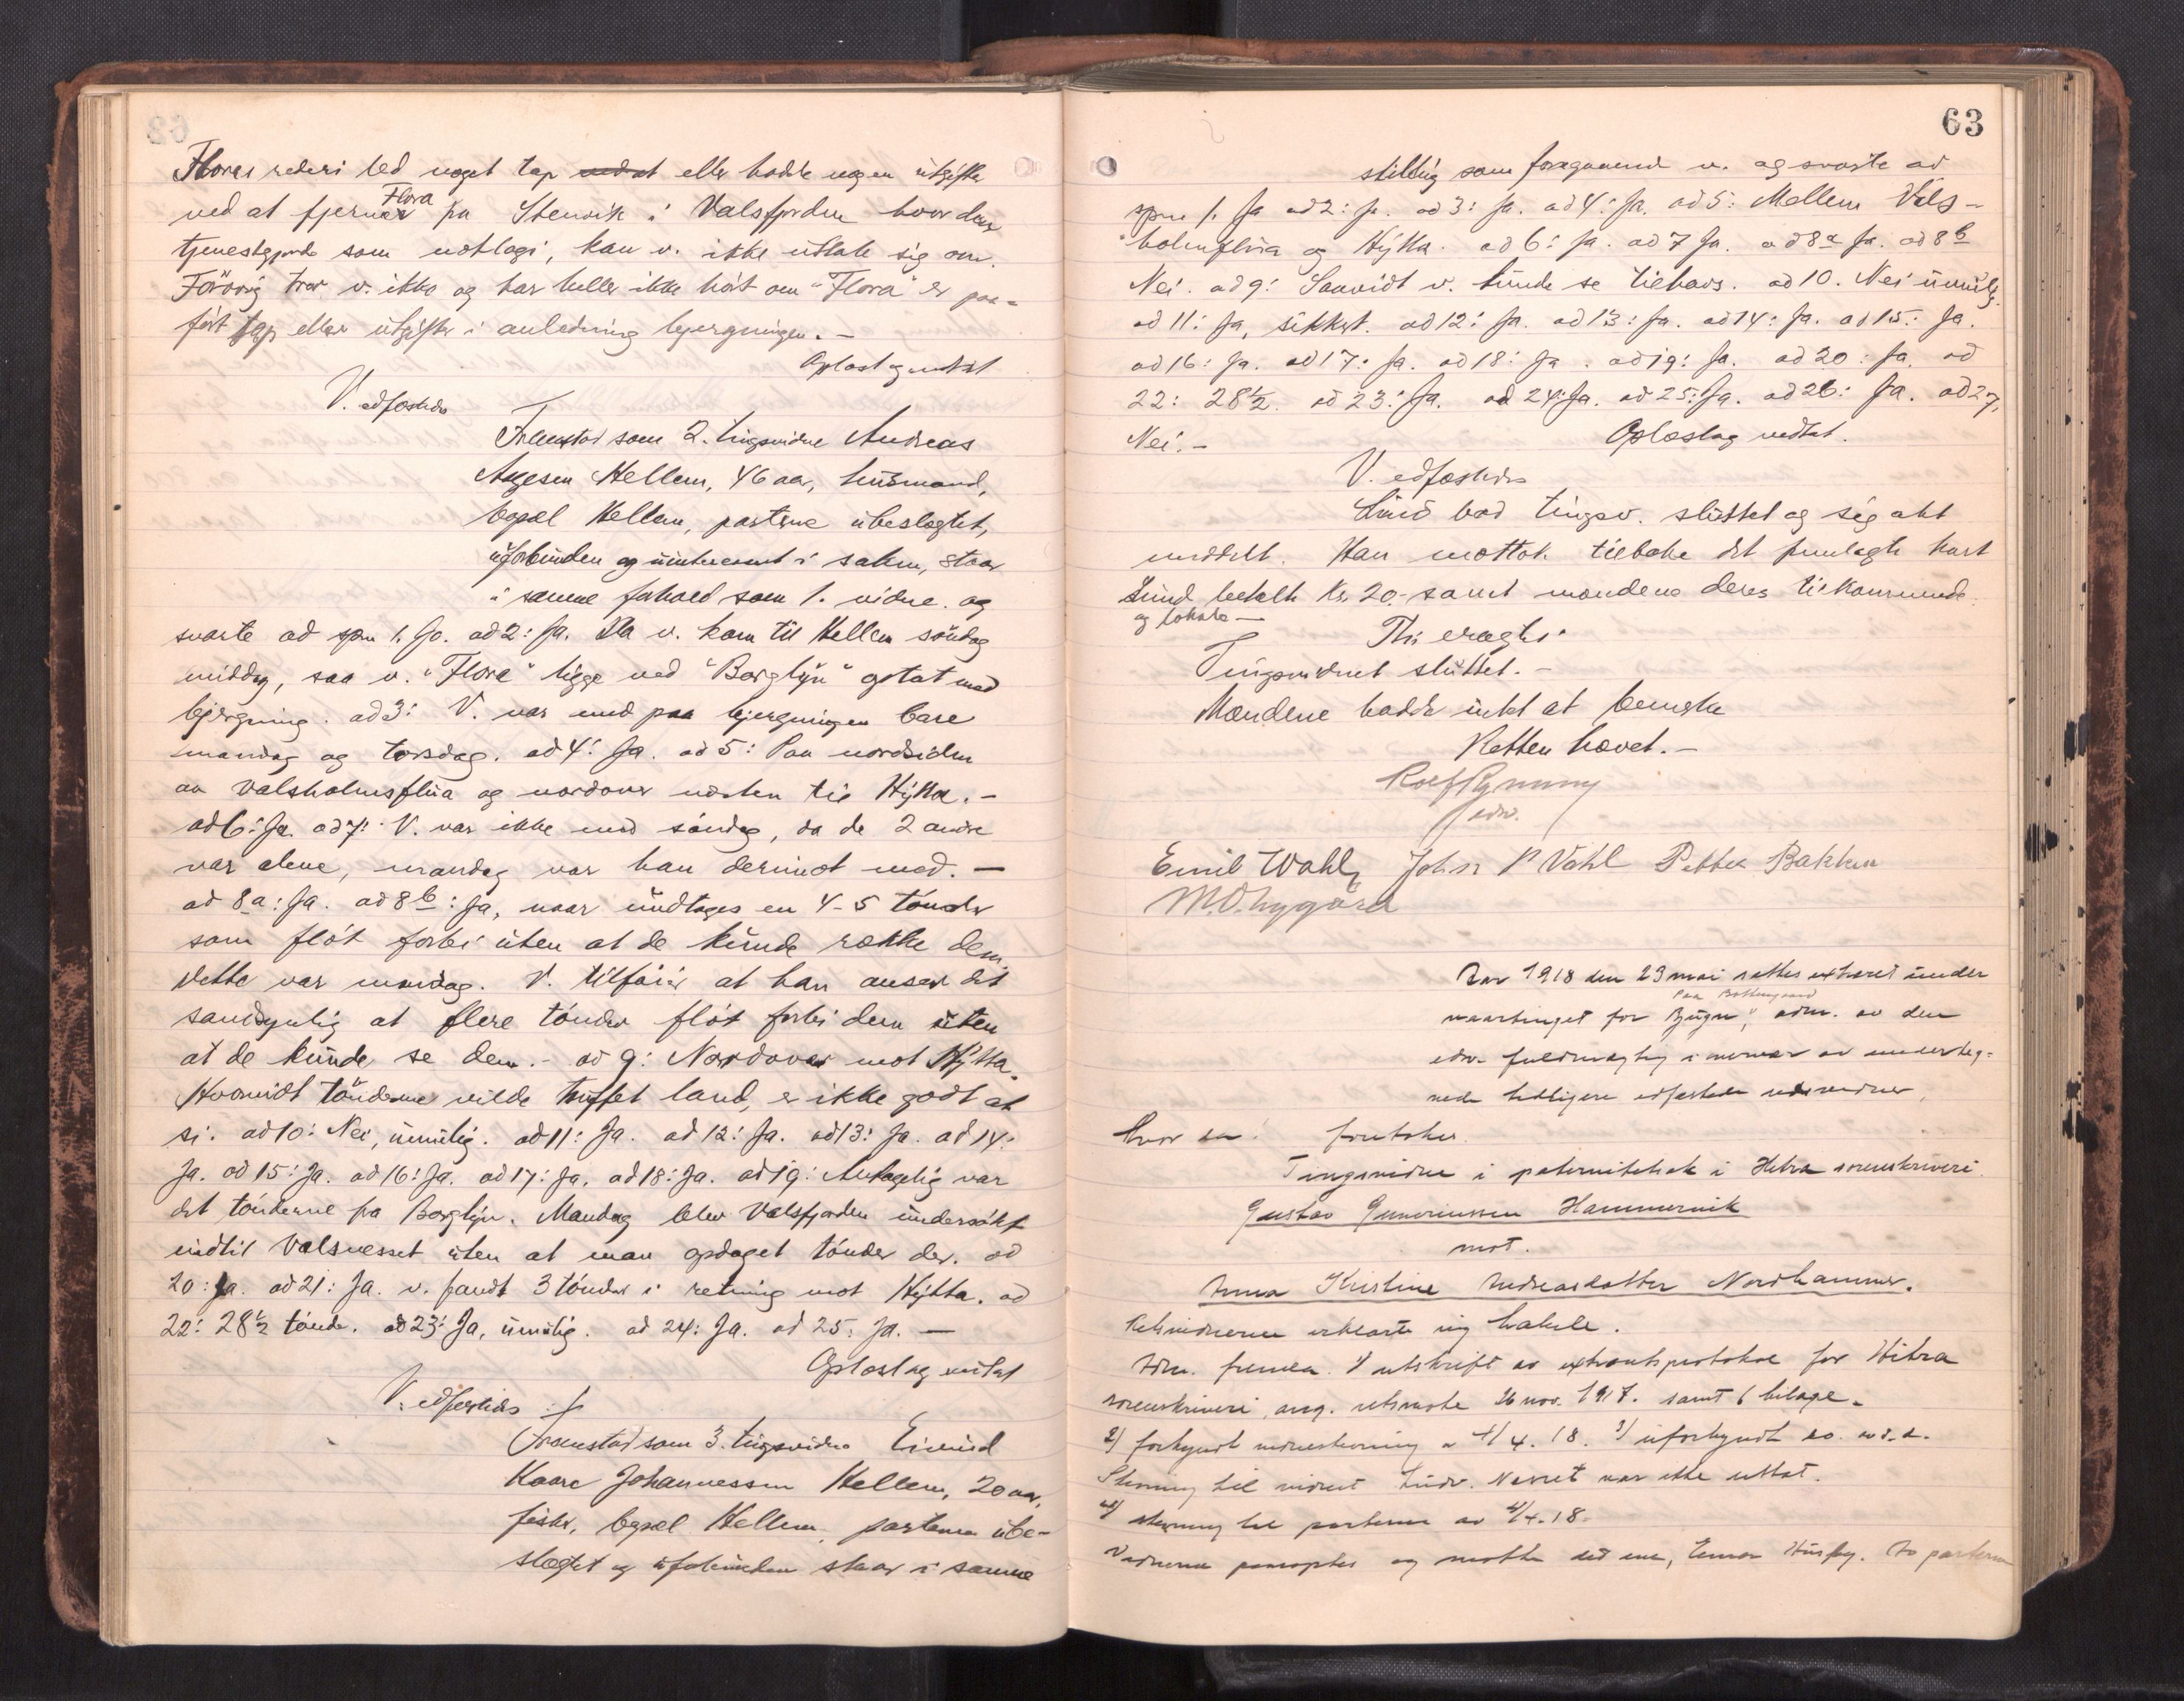 Floras rederi led noget tap ved at eller hadde nogen utgifter
ved at fjerne Flora fra Stenvik i Valsfjorden hvor den
tjenestgjorde som notlagi, kan v. ikke uttale sig om.
Forövrig tror v. ikke og har heller ikke hört om "Flora" er paa-
fört tap eller utgifter i anledning bjergningen. -
Oplæst og vedtat
V. edfæstedes
Fremstod som 2. tingsvidne Andreas
Aagesen Hellem, 46 aar, husmand,
bopæl Hellem, parterne ubeslegtet,
uforbunden og uinteressert i saken, staar
i samme forhold som 1. vidne og
svarte ad spm 1. Ja. ad 2: Ja. Da v. kom til Hellem söndag
middag, saa v. "Flora" ligge ved "Borglyn" optat med
bjergning. ad 3: V. var med paa bjergningen bare
mandag og torsdag. ad 4: Ja. ad 5: Paa nordsiden
av Valsholmsflua og nordover næsten til Hÿtta. -
ad 6: Ja. ad 7: V. var ikke med söndag, da de 2 andre
var alene, mandag var han derimot med. -
ad 8a: Ja. ad 8b: Ja, naar undtages en 4-5 tönder
som flöt forbi uten at de kunde række dem.
Dette var mandag. V. tilföier at han anser det
sandsynlig at flere tönder flöt forbi dem uten
at de kunde se dem. - ad 9: Nordover mot Hÿtta.
Hvorvidt tönderne vilde truffet land, er ikke godt at
si. ad 10: Nei, umulig. ad 11: Ja. ad 12: Ja. ad 13: Ja. ad 14:
Ja. ad 15: Ja. ad 16: Ja. ad 17: Ja. ad 18: Ja. ad 19: Antagelig var
det tönderne fra Borglyn. Mandag blev Valsfjorden undersökt
indtil Valsnesset uten at man opdaget tönder der. ad
20: Ja. ad 21: Ja. v. fandt 3 tönder i retning mot Hÿtta. ad
22: 28 1/2 tönde. ad 23: Ja, umulig. ad 24: Ja. ad 25: Ja. -
Oplæst og vedtat
V. edfæstedes
Fremstod som 3. tingsvidne Eivind
Kaare Johannessen Hellem, 20 aar,
fisker, bopæl Hellem, parterne ube-
slegtet og uforbunden staar i samme
63
stilling som foregaaende v. og svarte ad
spm 1. Ja ad 2: Ja. ad 3: Ja. ad 4: Ja. ad 5: Mellem Vals-
holmflua og Hÿtta. ad 6: Ja. ad 7 Ja. ad 8a Ja. ad 8b
Nei. ad 9: Saavidt v. kunde se tilhavs. ad 10. Nei umulig.
ad 11: Ja, sikkert. ad 12: Ja. ad 13: Ja. ad 14: Ja. ad 15: Ja.
ad 16: Ja. ad 17: Ja. ad 18: Ja. ad 19: Ja. ad 20: Ja. ad
22: 28 1/2. ad 23: Ja. ad 24: Ja. ad 25: Ja. ad 26: Ja. ad 27,
Nei. -
Oplæst og vedtat.
V. edfæstedes
Lund bad tingsv. sluttet og sig akt
meddelt. Han mottok tilbake det fremlagte kart
Lund betalte Kr. 20.- samt mændene deres tilkommende.
og lokale -
Thi eragtes:
Tingsvidnet sluttet. -
Mændene hadde intet at bemerke
Retten hævet. -
edv.
Emil Wahl, John P Vahl Petter Bakken
M.O. Nygård
Aar 1918 den 23 mai sattes extraret under
paa Bottengaard
vaartinget for Bjugn, adm. av den
edv. fuldmægtig i nærvær av underteg-
nede tidligere edfæstede vidner,
hvor da: foretokes
Tingsvidne i paternitetsak i Hitra sorenskriveri
Gustav Hammervik
mot.
Anna Kristine Andreasdatter Nordhammer.
Retsvidnerne erklærte sig habile.
Adm. fremla 1) utskrift av extraretsprotokol for Hitra
sorenskriveri, ang. retsmøte 26 nov. 1917. samt 6 bilage.
2) forkyndt vidnestevning av 4/4. 18. 3) uforkyndt do. av s. d.
Stevning til vidnet var ikke uttat.
4) stevning til parterne av 4/4. 18.
Vidnerne paaroptes og møtte det ene, Husby. Av parterne